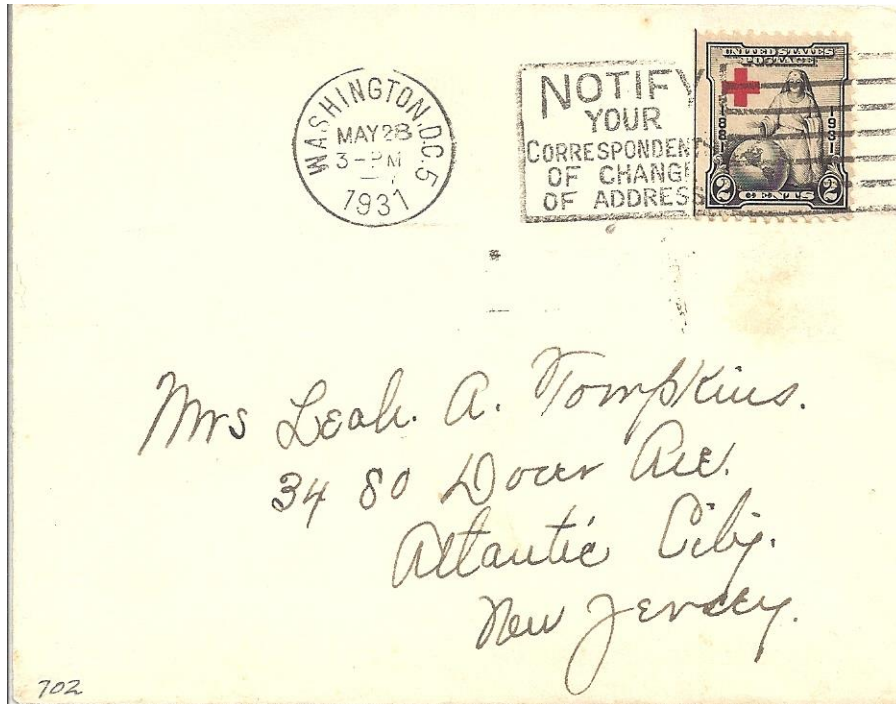 WASHINGTON, D.C. 5
MAY 28
3-PM
1931
NOTIFY
YOUR
CORRESPONDEN
OF CHANGE
OF ADDRESS
UNITED STATES
POSTAGE
1881
1931
2 CENTS 2
Mrs Leah. A. Tompkins.
34 80 Dover Ave.
Atlantic City.
New Jersey.
702